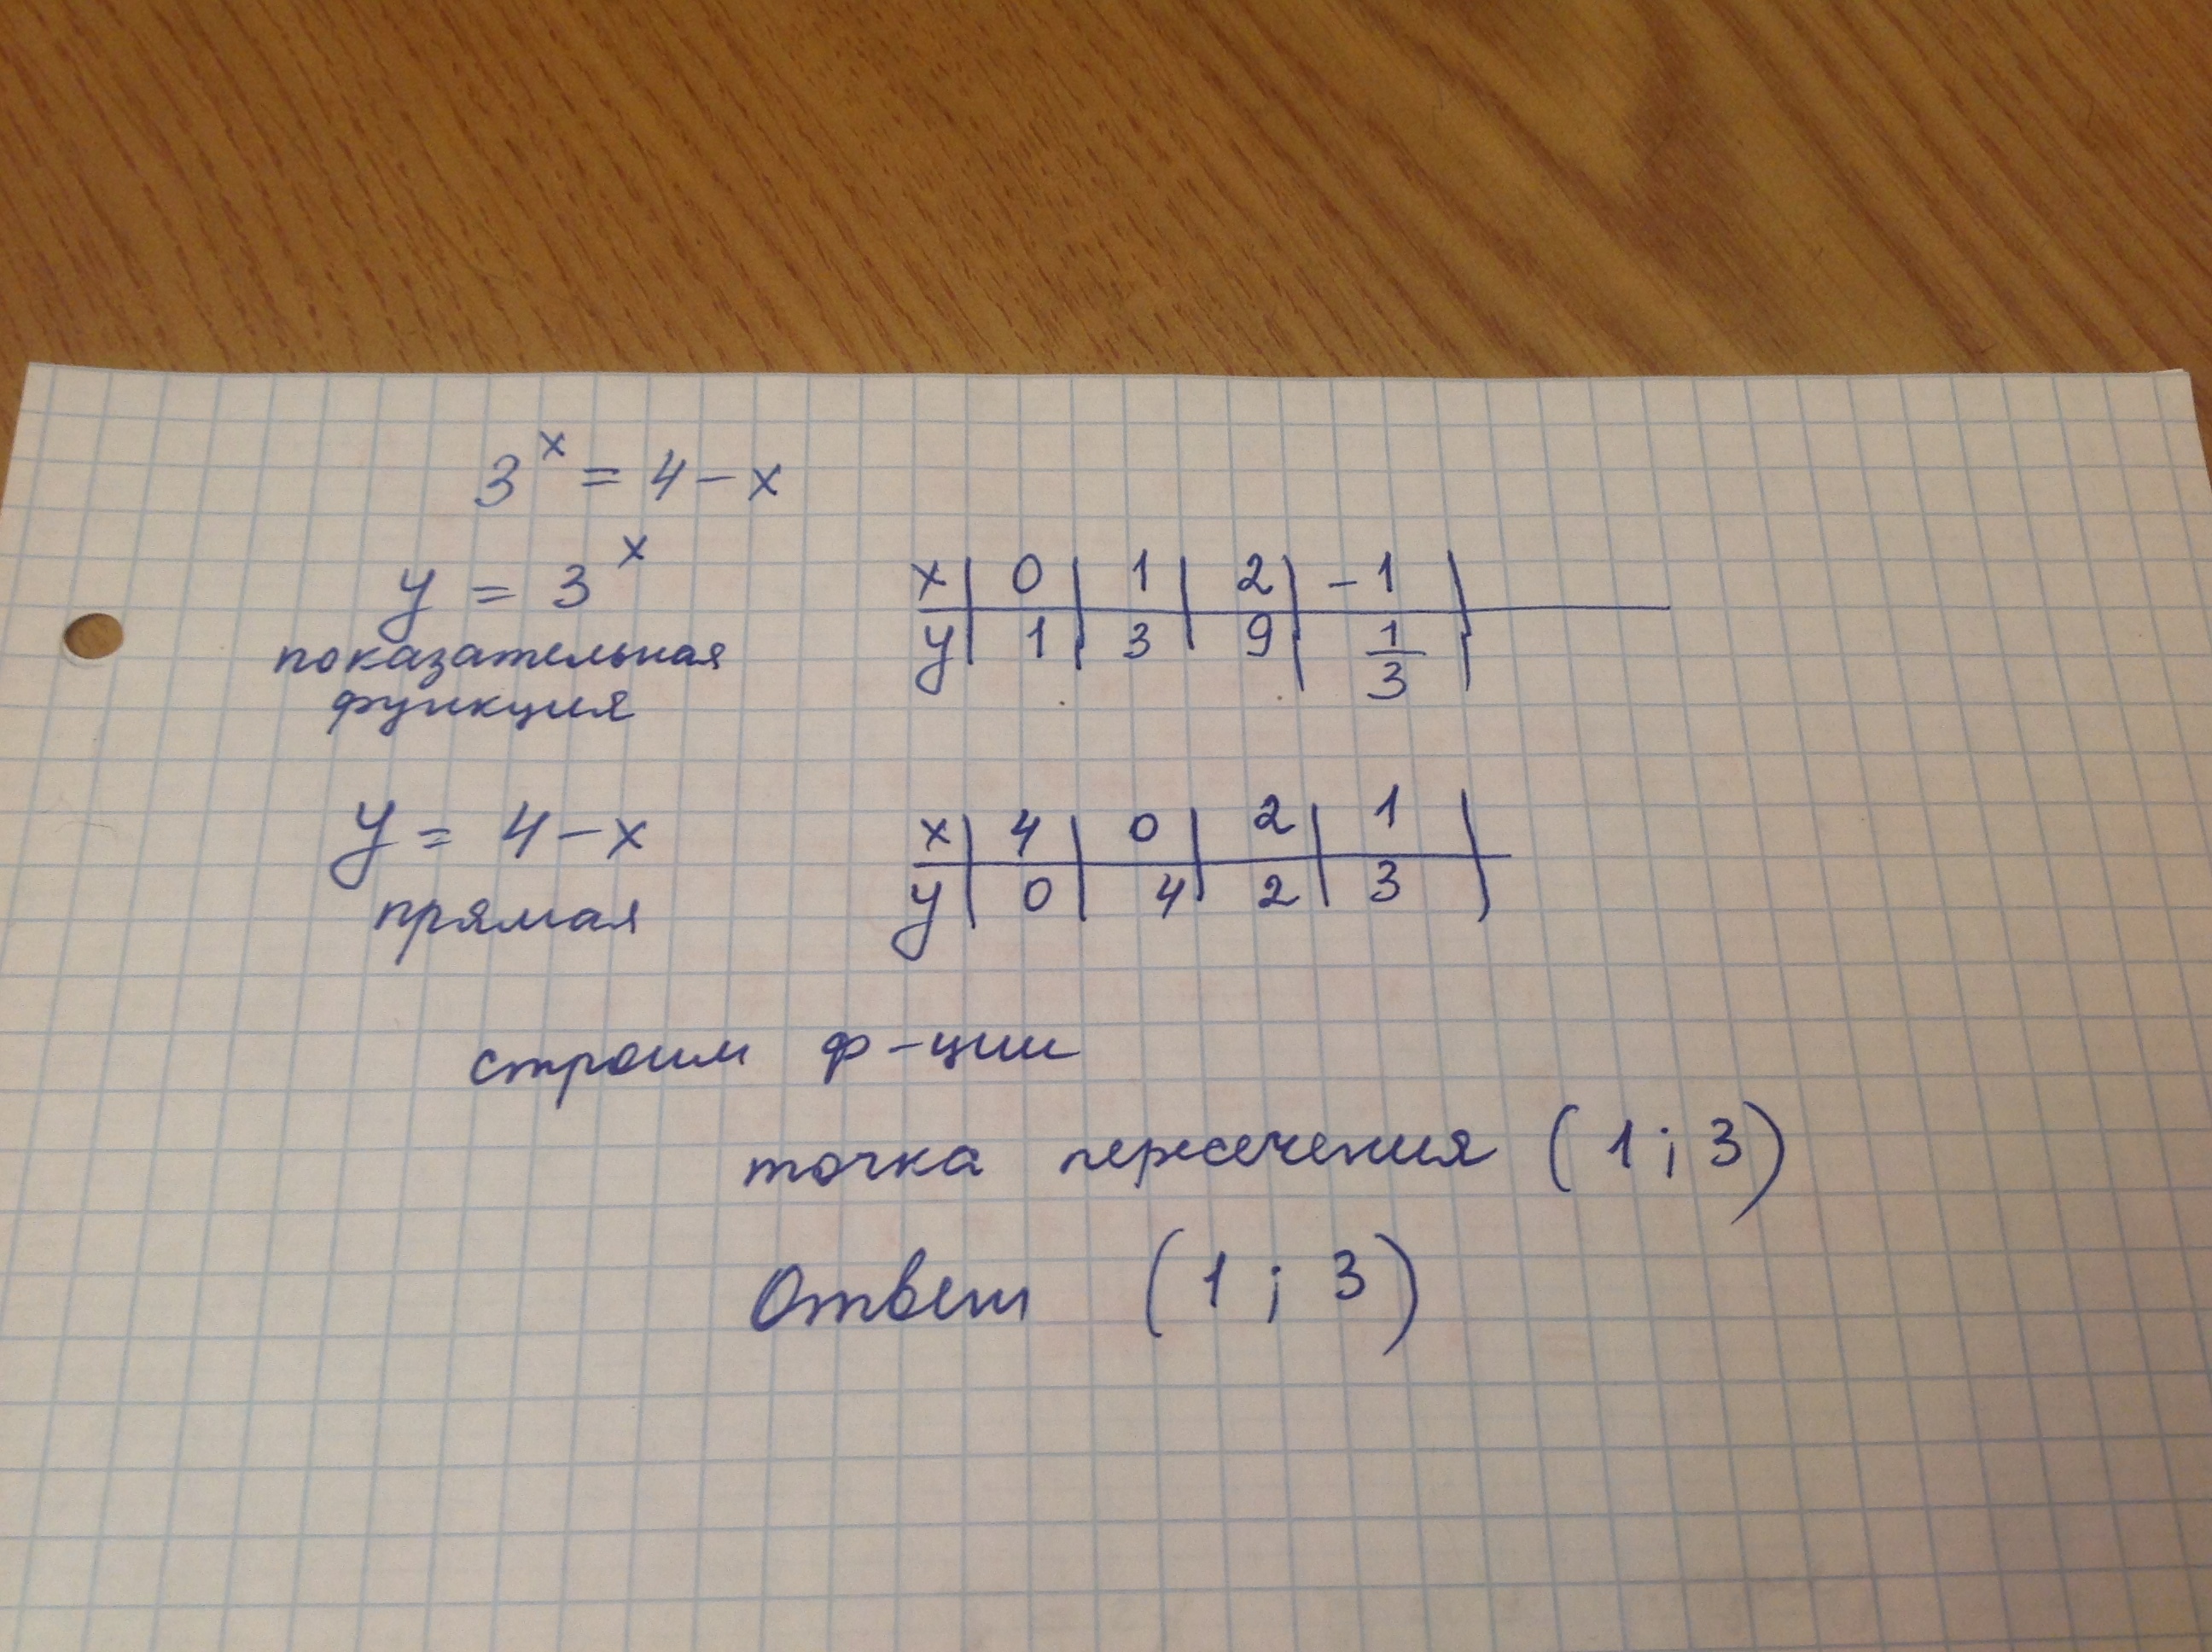 3^x = 4 - x
y = 3^x
показательная
функция
x | 0 | 1 | 2 | -1 |
y | 1 | 3 | 9 | 1/3 |
y = 4 - x
прямая
x | 4 | 0 | 2 | 1 |
y | 0 | 4 | 2 | 3 |
строим ф-ции
точка пересечения (1; 3)
Ответ (1; 3)